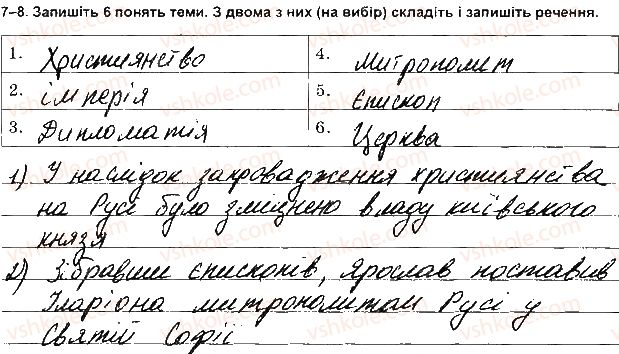 7–8. Запишіть 6 понять теми. З двома з них (на вибір) складіть і запишіть речення.
1. Християнство
4. Митрополит
2. імперія
5. Єпископ
3. Дипломатія
6. Церква
1) У наслідок запровадження християнства
на Русі було зміцнено владу київського
князя
2) Зібравши єпископів, Ярослав поставив
Іларіона митрополитом Русі у
Святій Софії